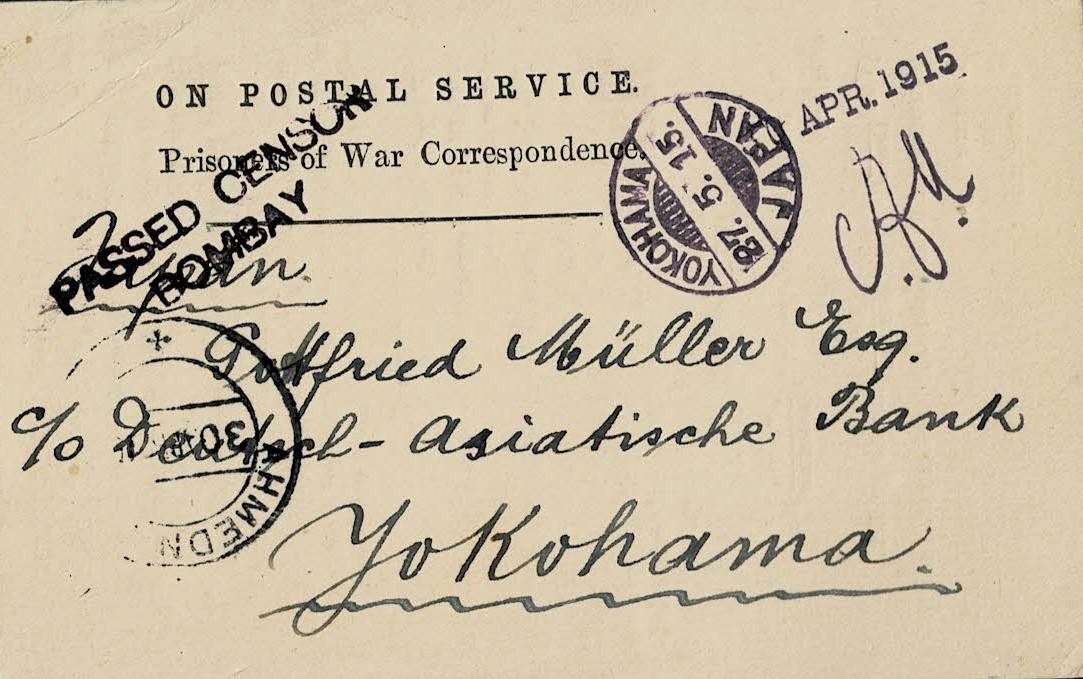 ON POSTAL SERVICE.
Prisoners of War Correspondence.
PASSED CENSOR
BOMBAY
APR. 1915
YOKOHAMA
27. 5. 15.
JAPAN
Japan.
Gottfried Müller Esq.
c/o Deutsch-Asiatische Bank
Yokohama.
30
AHMEDN